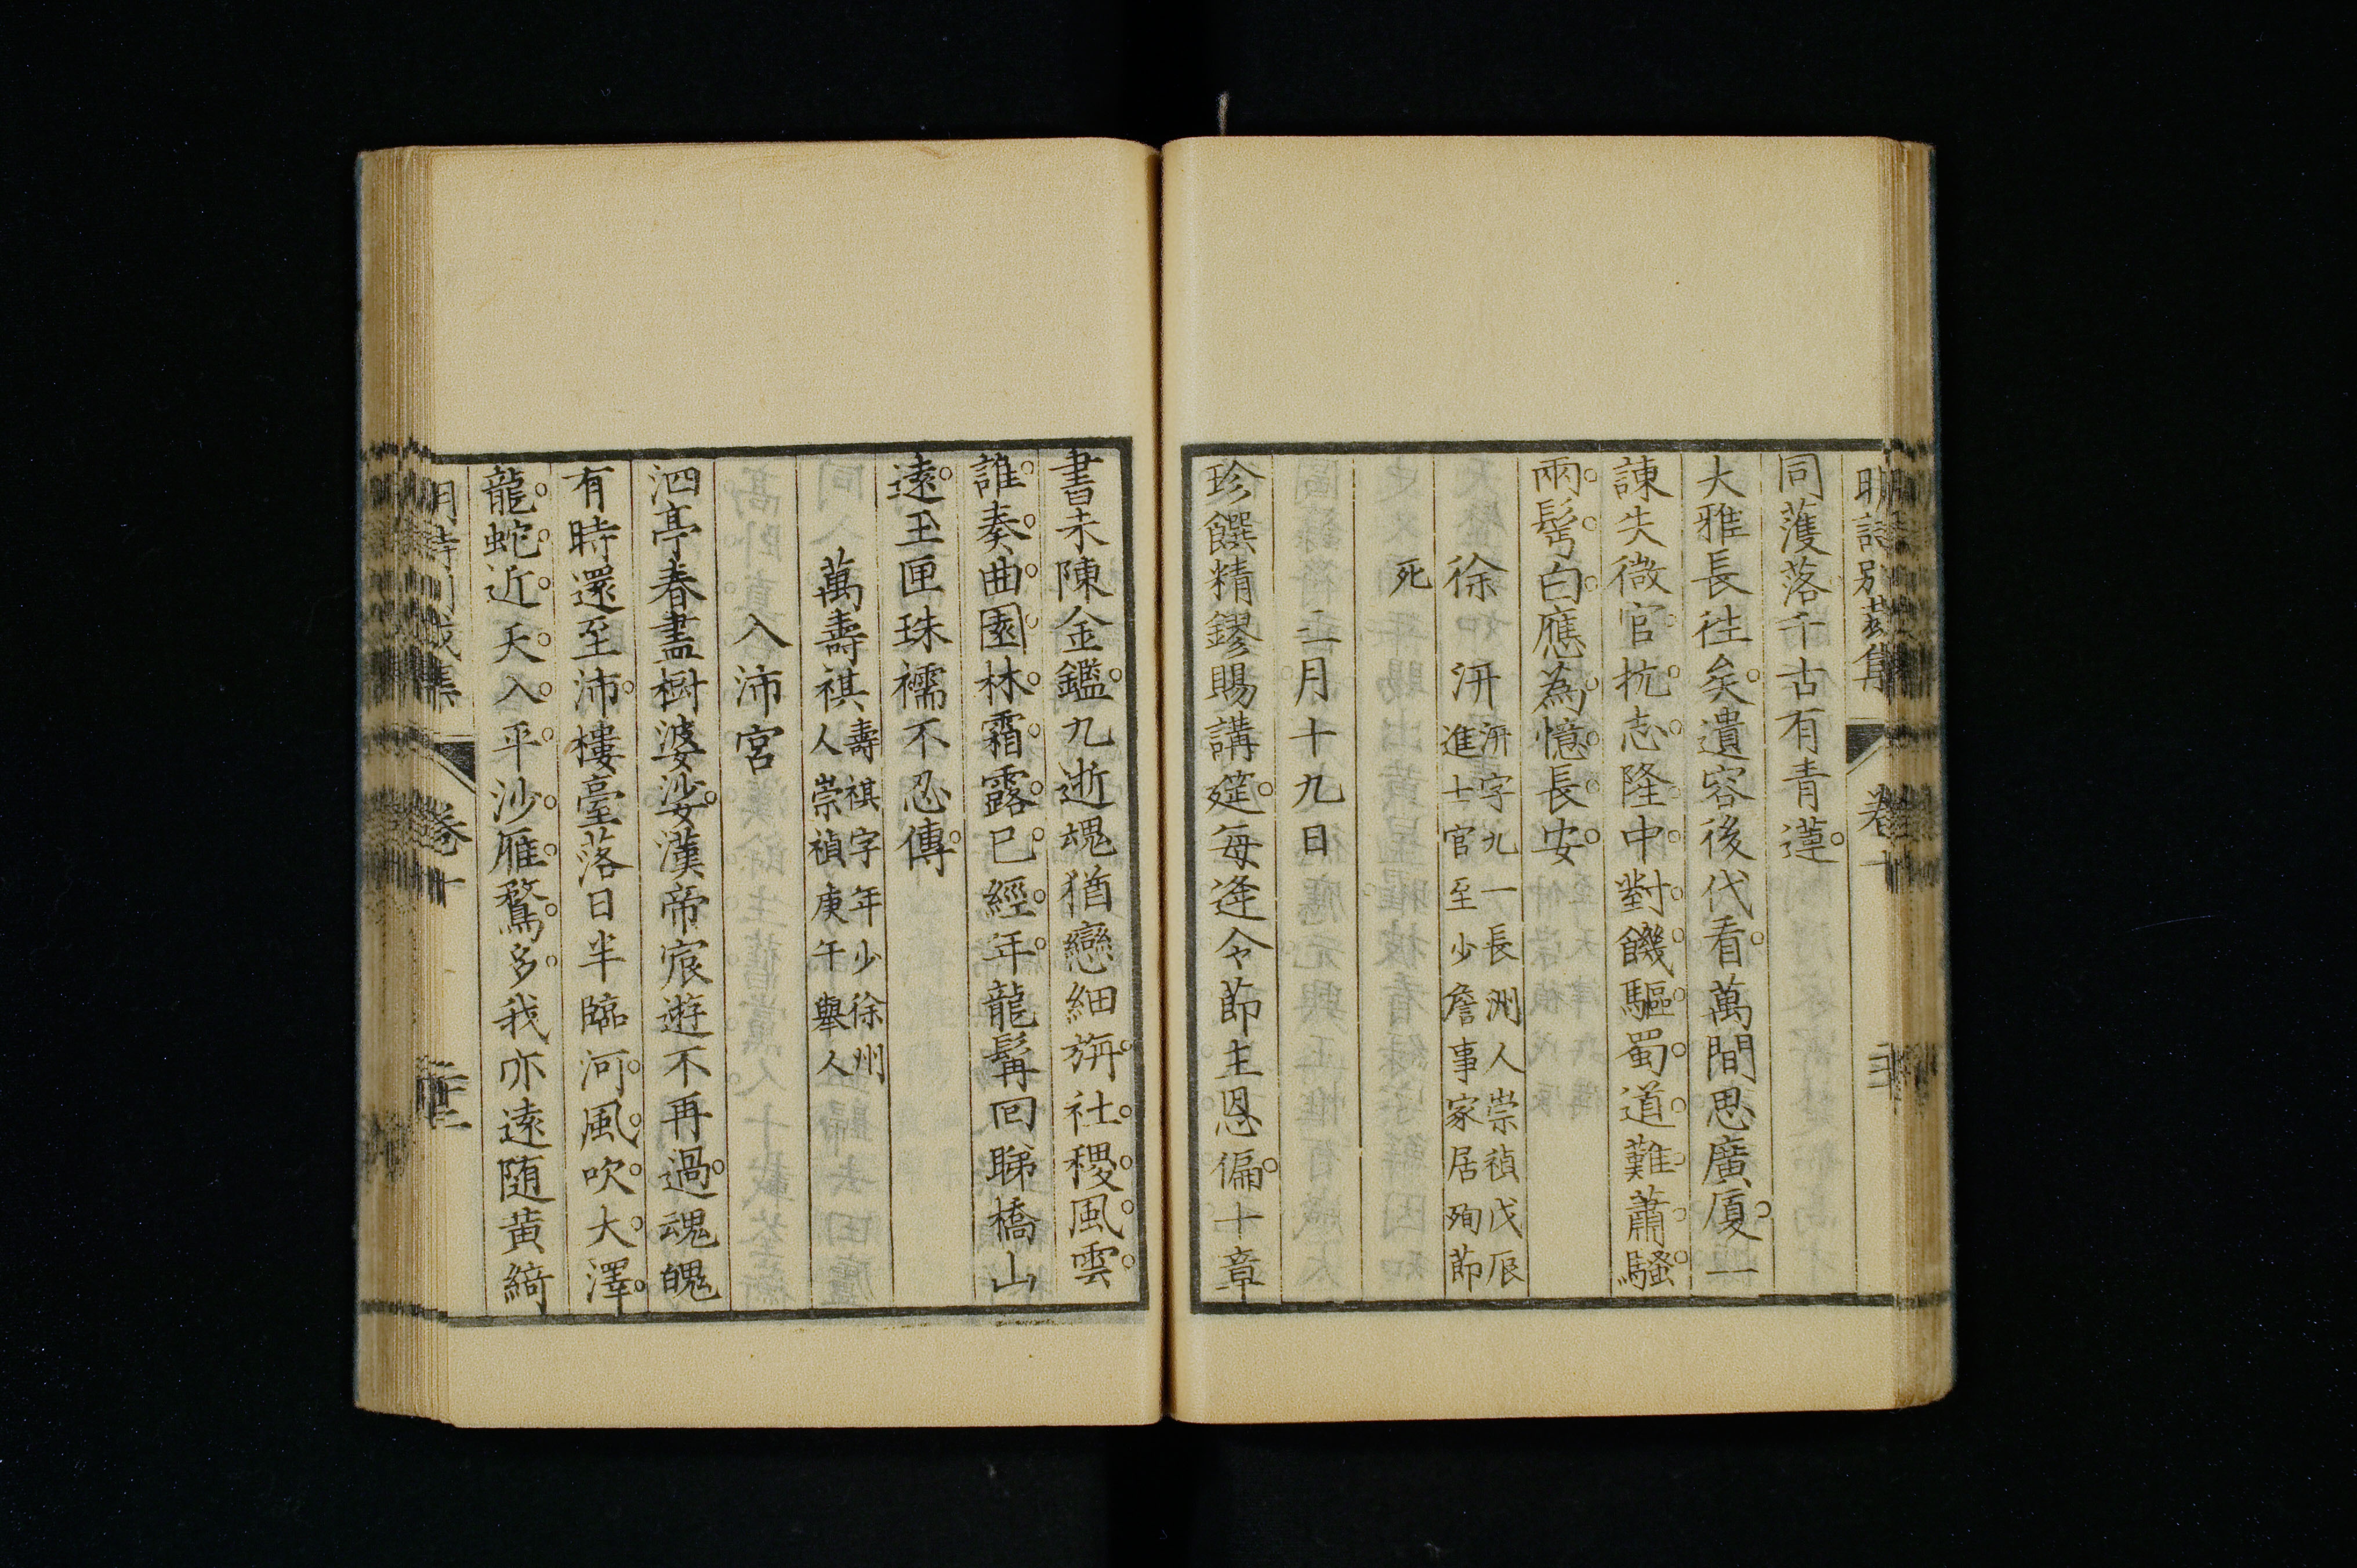 明詩別裁集 卷十
同蒦落千古有青蓮
大雅長往矣遺容後代看萬間思廣廈一
諫失微官抗志隆中對饑驅蜀道難蕭騷
兩髩白應為憶長安
徐汧 汧字九一長洲人崇禎戊辰
進士官至少詹事家居殉節
死
二月十九日
珍饌精鏐賜講筵每逢令節主恩偏十章
書未陳金鑑九逝魂猶戀細旃社稷風雲
誰奏曲園林霜露已經年龍髯回睇橋山
遠玉匣珠襦不忍傳
萬壽祺 壽祺字年少徐州
人崇禎庚午舉人
入沛宮
泗亭春盡樹婆娑漢帝宸遊不再過魂魄
有時還至沛樓臺落日半臨河風吹大澤
龍蛇近天入平沙雁鶩多我亦遠隨黃綺
卷十